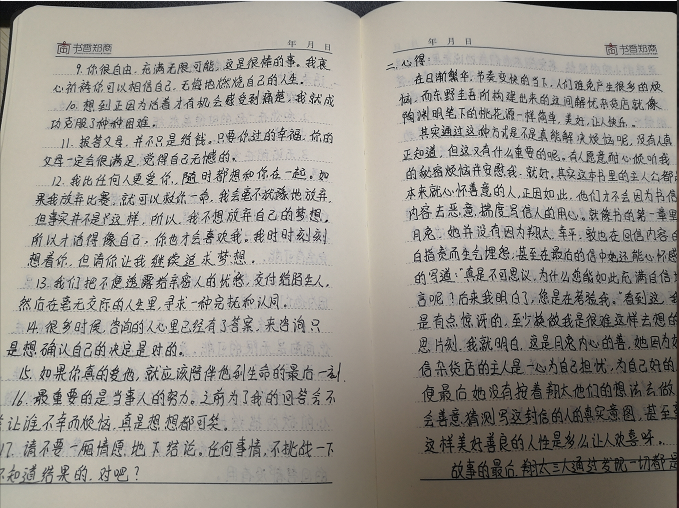 年 月 日
书香知商
9. 你很自由,充满无限可能,这是很棒的事。我衷
心祈祷你可以相信自己,无悔地燃烧自己的人生。
10. 想到正因为活着才有机会感受到痛楚,我就成
功克服了种种困难。
11. 孝父母,并不只是给钱。只要你过的幸福,你的
父母一定会很满足,觉得自己无憾的。
12. 我比任何人更爱你,随时都想和你在一起。如
果我放弃比赛,就可以救你一命,我会毫不犹豫地放弃,
但事实并不是这样,所以,我不想放弃自己的梦想。
所以才活得像自己,你也才会喜欢我。我时时刻刻
想着你,但请你让我继续追求梦想。
13. 我们把不便透露给亲密人的忧愁,交付给陌生人。
然后在毫无交际的人生里,寻求一种完抚和认同。
14. 很多时候,咨询的人心里已经有了答案,来咨询只
是想确认自己的决定是对的。
15. 如果你真的爱他,就应该陪伴他到生命的最后一刻
16. 最重要的是当事人的努力。之前为了我的回答会不
会让谁不幸而烦恼,真是想想都可笑。
17. 请不要一厢情愿地下结论。任何事情,不挑战一下
不知道结果的,对吧?
年 月 日
书香知商
二、心得:
在日渐繁华,节奏变快的当下,人们难免产生很多的烦
恼,而东野圭吾所构建出来的这间解忧杂货店就像
陶渊明笔下的桃花源一样简单,美好,让人快乐。
其实通过这种方式是不是真能解决烦恼呢,没有人真
正知道,但这又有什么重要的呢。有人愿意耐心倾听我
的秘密烦恼并安慰我,就好。其实这本书里的主人公都
本来就心怀善意的人,正因如此,他们才不会因为书信
内容去恶意揣度写信人的用心。就像书的第一章里
月兔,她并没有因为翔太、幸平、敦也在回信内容
白指责而生气埋怨,甚至在最后的信中她还能心怀感
的写道:“真是不可思议,为什么您能如此充满自信
言呢?后来我明白了,您是在考验我。”看到这,
是有点惊讶的,至少换做我是很难这样去想的
思片刻,我就明白,这是月兔内心的善,她因为
信杂货店的主人是一心为自己担忧,为自己好的
便最后她没有按着翔太他们的想法去做
会善意猜测写这封信的人的真实意图,甚至
这样美好善良的人性是多么让人欢喜呀。
故事的最后,翔太三人通过发现一切都是